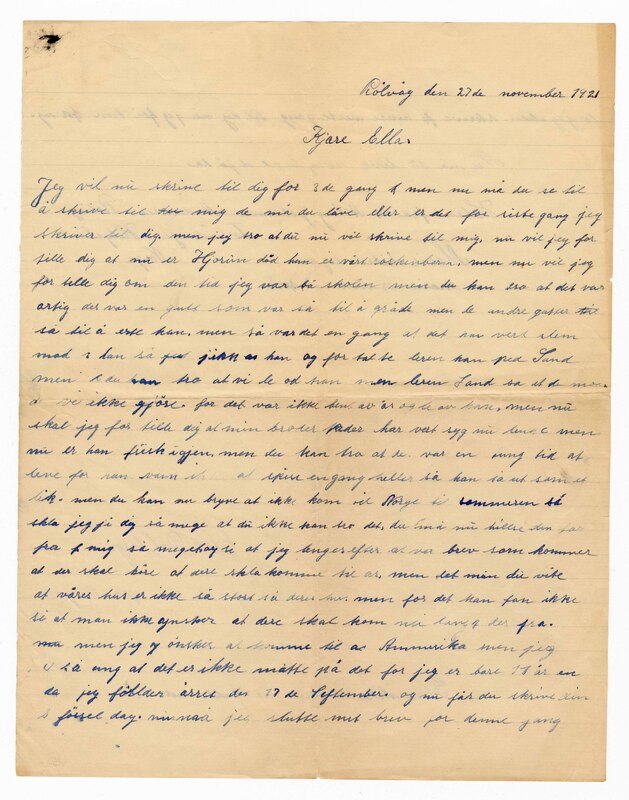 Rölvåg den 27 de november 1921
Kjære Ella.
Jeg vil nu skrive til dig for 3 de gang men nu må du se til
å skrive til mig de må du låve eller er det for siste gang jeg
skriver til dig. men jeg tro at du nu vil skrive til mig. nu vil jeg for
telle dig at nu er død han er vårt men nu vil jeg
for telle dig om den tid jeg var på skolen men du kan tro at det var
artig der var en gutt som var så til å gråde men de andre gutter
så til å erte han. men så var det en gang at det var vert slem
mod han så jikk han og for talte leren han ped Sand
men du kan tro at vi le od han men leren Sand sa at de må
vi ikke gjöre. for det var ikke å le av han. men nu
skal jeg for telle dig at min broder peder har vert syg nu men
nu er han frisk igjen. men du kan tro at de var en ung tid at
leve for han at spise engang heller så han så ut som et
lik. men du kan nu at ikke kom vil Norge til sommeren så
skla jeg ji dig så mege at du ikke kan tro det. du må nu hillse din far
fra mig så meget at jeg langes efter at brev som kommer
at der skal at dere skla komme til as. men det må du vite
at våres hus er ikke så stort så deres men for det kan fan ikke
si at man ikke ønsker at dere skal kom nu der fra.
men jeg önsker at komme til as Ammerika men jeg
så ung at det er ikke måtte på det for jeg er bare 13 år en
da jeg földer årret den 17 de September. og nu får du skrive din
försel day. nu må jeg slutte mit brev for denne gang